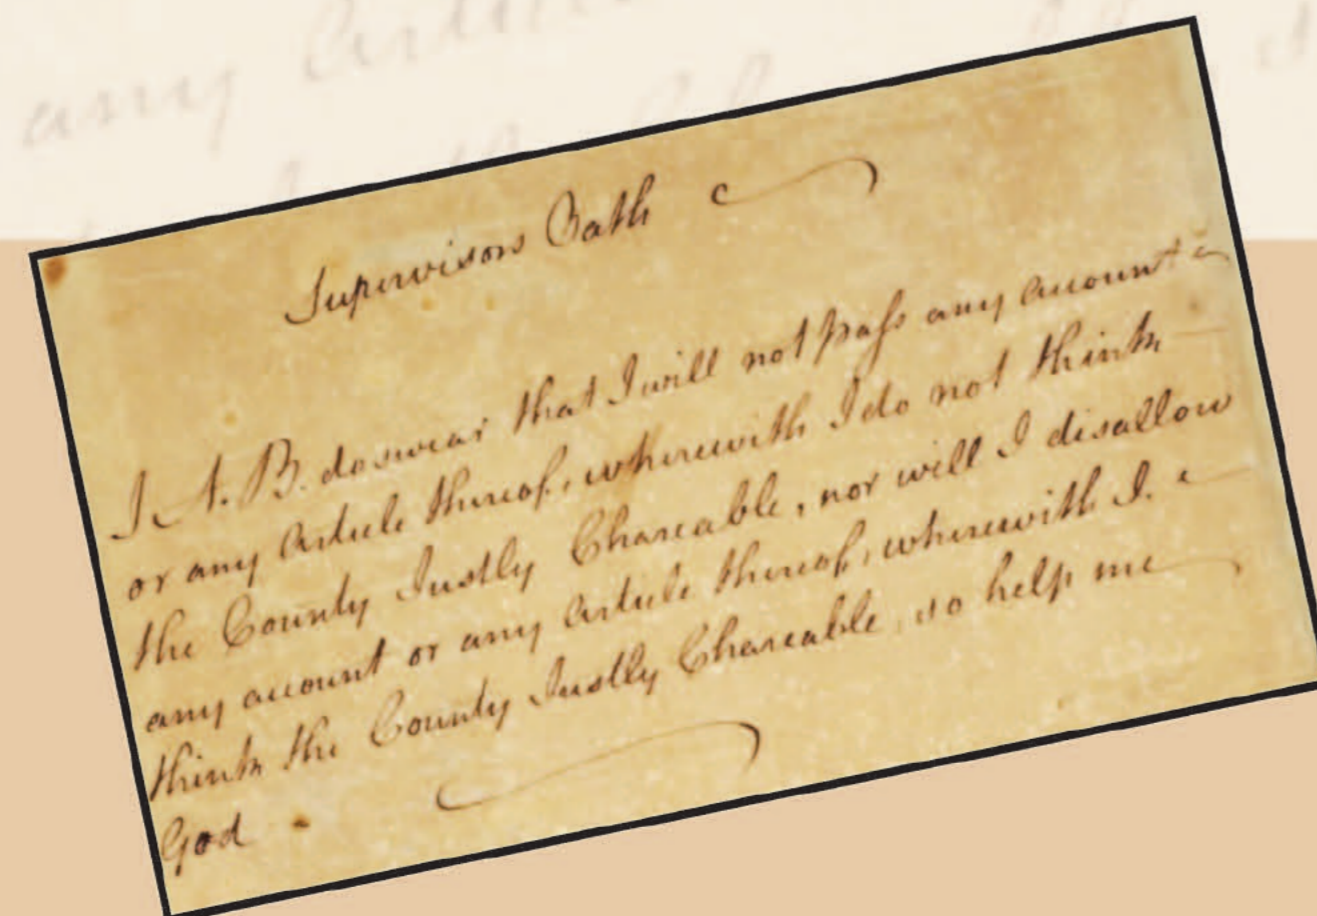 any Article
Supervisors Oath
I A. B. do swear that I will not pass any account
or any Article thereof, wherewith I do not think
the County Justly Chareable, nor will I disallow
any account or any Article thereof, wherewith I.
think the County Justly Chareable, so help me
God